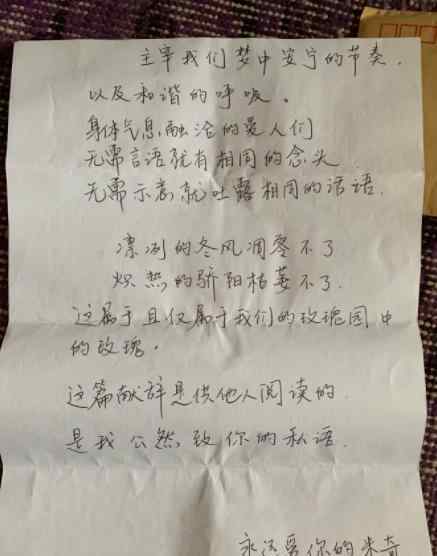 主宰我们梦中安宁的节奏，
以及和谐的呼吸。
身体气息融洽的爱人们
无需言语就有相同的念头
无需示意就吐露相同的话语.
凛冽的冬风凋零不了
炽热的骄阳枯萎不了.
这属于且仅属于我们的玫瑰园中
的玫瑰。
这篇献辞是供他人阅读的
是我公然致你的私语.
永远爱你的米奇